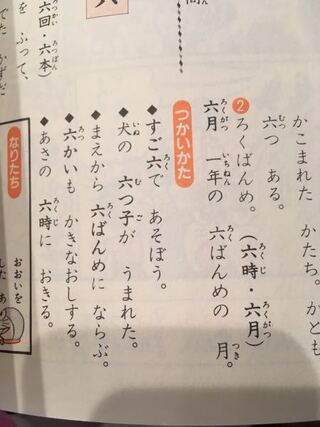 かこまれた かたち。かども
六つ ある。
❷ ろくばんめ。(六時・六月)
六月 一年の 六ばんめの 月。
つかいかた
◆すご六で あそぼう。
◆犬の 六つ子が うまれた。
◆まえから 六ばんめに ならぶ。
◆六かいも かきなおしする。
◆あさの 六時に おきる。
六回・六本)
を ふって、
でた かずだ
なりたち
おおいを
した あ